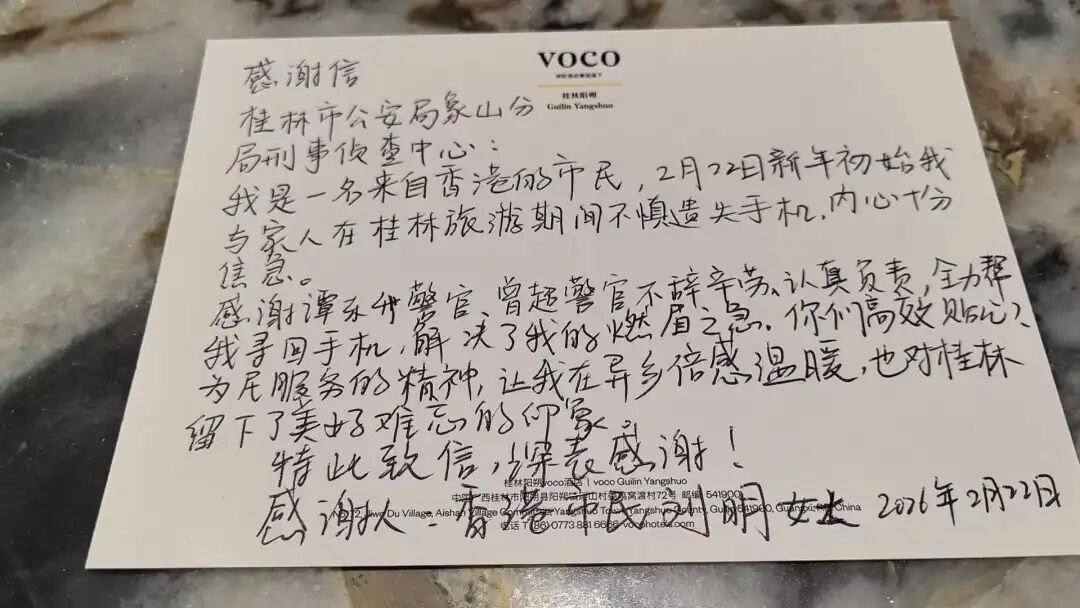 VOCO
桂林阳朔
Guilin Yangshuo
感谢信
桂林市公安局象山分
局刑事侦查中心：
我是一名来自香港的市民，2月22日新年初始我
与家人在桂林旅游期间不慎遗失手机，内心十分
急。
感谢谭永升警官、曾超警官不辞辛劳、认真负责，全力帮
我寻回手机，解决了我的燃眉之急。你们高效贴心、
为民服务的精神，让我在异乡倍感温暖，也对桂林
留下了美好难忘的印象
特此致信，深表感谢！
桂林阳朔voco酒店 | voco Guilin Yangshuo
感谢人：香港市民刘明女士 2026年2月22日
中国广西桂林市阳朔县阳朔镇 山村 窝渡村72号 邮编 541900
72, Wo Du Village, Aishan Village Committee, Yangshuo Town, Yangshuo County, Guilin 541900, Guangxi, P.R. China
电话 T (86) 0773 881 6666 vocohotels.com